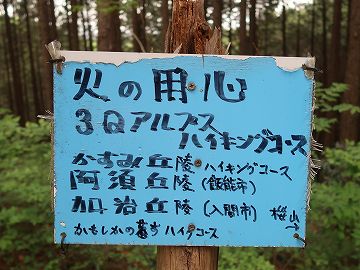 火の用心
3Qアルプス
ハイキングコース
かすみ丘陵ハイキングコース
阿須丘陵(飯能市)
加治丘陵(入間市) 桜山→
かもしかの ハイクコース